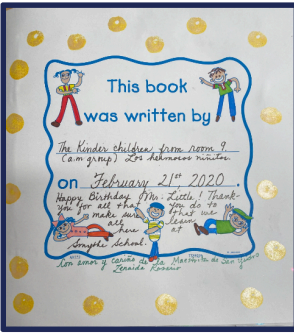 This book
was written by
The Kinder children from room 9.
(a.m group) Los hermosos niñitos.
on February 21st 2020.
Happy Birthday Mr. Little! Thank-
you for all that you do to
make sure that we
all learn
here at
Smythe School.
Con amor y cariño de la Maestra de San Ysidro
y Zenaida Rosario